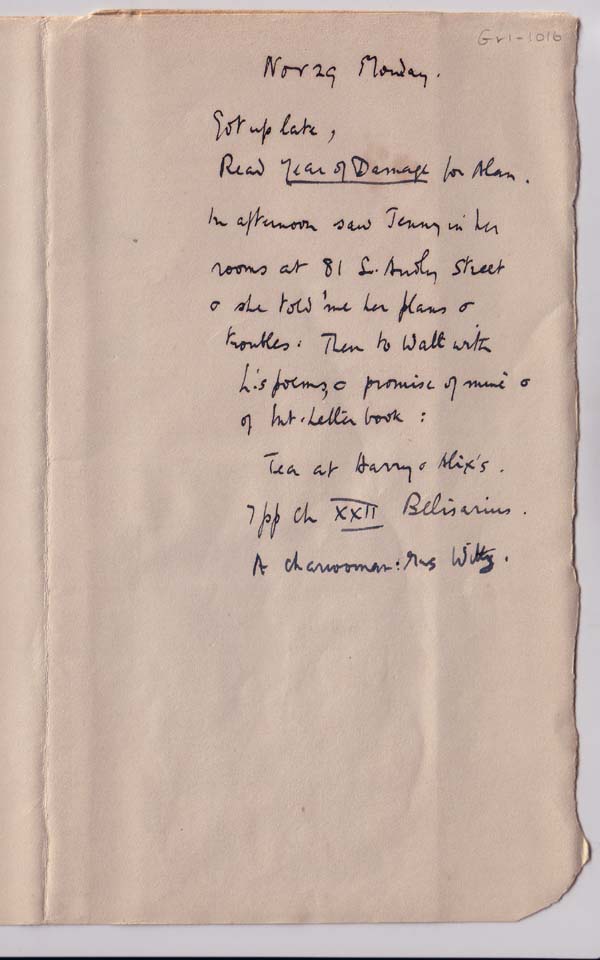 Gr1-1016
Nov 29 Monday.
Got up late,
Read Year of Damage for Alan.
In afternoon saw Jenny in her
rooms at 81 S. Audley Street
& she told me her plans &
troubles. Then to Watt with
his poems, & promise of mine &
of Int. Letter book:
Tea at Harry & Alix's.
7 pp ch XXII Belisarius.
A charwoman: Mrs